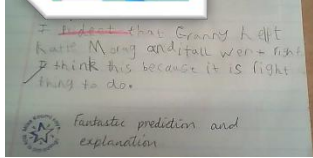 I predect that Granny helft
Katie Morag and itall went right
I think this because it is right
thing to do.
Fantastic prediction and
explanation